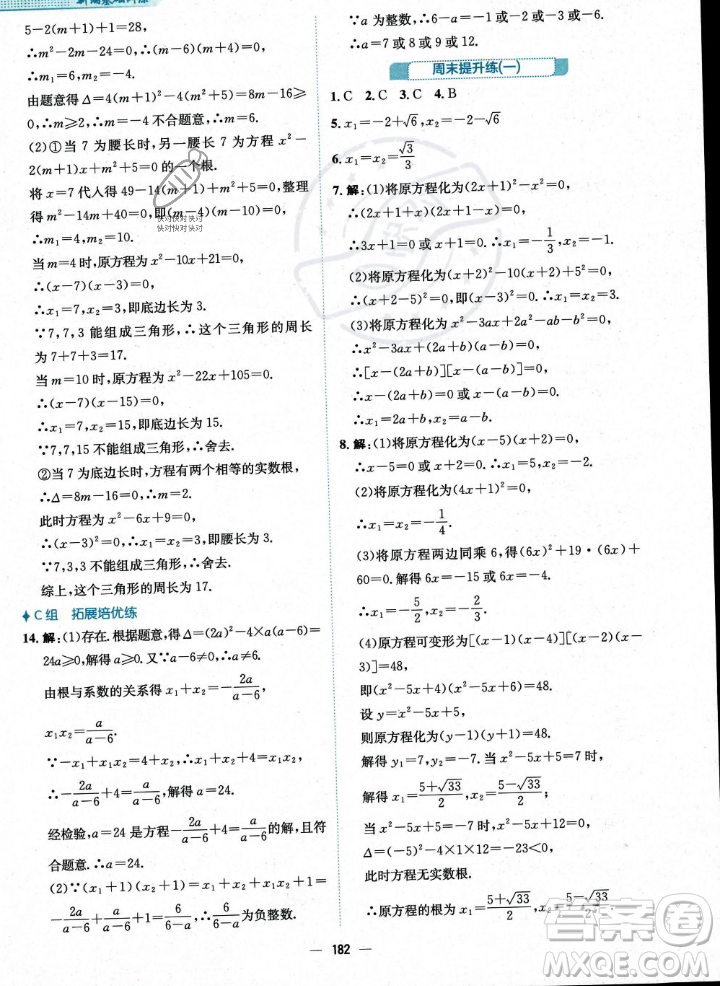 5-2(m+1)+1=28,
∴m²-2m-24=0,
∴m₁=6,m₂=-4.
由题意得Δ=4(m+1)²-4(m²+5)=8m-16≥0,
∴m≥2.∴m=-4不合题意,∴m=6.
(2)①当7为腰长时,另一腰长7为方程x²-
2(m+1)x+m²+5=0的一个根.
将x=7代入得49-14(m+1)+m²+5=0,整理
得m²-14m+40=0,即(m-4)(m-10)=0,
∴m₁=4,m₂=10.
当m=4时,原方程为x²-10x+21=0,
∴(x-7)(x-3)=0.
∴x₁=7,x₂=3,即底边长为3.
∵7,7,3能组成三角形,∴这个三角形的周长
为7+7+3=17.
当m=10时,原方程为x²-22x+105=0.
∴(x-7)(x-15)=0.
∴x₁=7,x₂=15,即底边长为15.
∵7,7,15不能组成三角形,∴舍去.
②当7为底边长时,方程有两个相等的实数根,
∴Δ=8m-16=0.∴m=2.
此时方程为x²-6x+9=0.
∴(x-3)²=0.∴x₁=x₂=3,即腰长为3.
∵3,3,7不能组成三角形,∴舍去.
综上,这个三角形的周长为17.
C组 拓展培优练
14.解:(1)存在.根据题意,得Δ=(2a)²-4×a(a-6)=
24a≥0,解得a≥0.又∵a-6≠0,∴a≠6.
由根与系数的关系得x₁+x₂=-2a/(a-6),
x₁x₂=a/(a-6).
∵-x₁+x₁x₂=4+x₂,∴x₁+x₂+4=x₁x₂.
∴-2a/(a-6)+4=a/(a-6),解得a=24.
经检验,a=24是方程-2a/(a-6)+4=a/(a-6)的解,且符
合题意.∴a=24.
(2)∵(x₁+1)(x₂+1)=x₁+x₂+x₁x₂+1=
-2a/(a-6)+a/(a-6)+1=6/(6-a),∴6/(6-a)为负整数.
∵a为整数,∴6-a=-1或-2或-3或-6.
∴a=7或8或9或12.
周末提升练(一)
1.C 2.C 3.C 4.B
5.x₁=-2+√6,x₂=-2-√6
6.x₁=x₂=√3/3
7.解:(1)将原方程化为(2x+1)²-x²=0,
∴(2x+1+x)(2x+1-x)=0,
∴3x+1=0或x+1=0.∴x₁=-1/3,x₂=-1.
(2)将原方程化为(x+2)²-10(x+2)+25=0,
∴(x+2-5)²=0,即(x-3)²=0.∴x₁=x₂=3.
(3)将原方程化为x²-3ax+2a²-ab-b²=0,
∴x²-3ax+(2a+b)(a-b)=0.
∴[x-(2a+b)][x-(a-b)]=0.
∴x-(2a+b)=0或x-(a-b)=0.
∴x₁=2a+b,x₂=a-b.
8.解:(1)将原方程化为(x-5)(x+2)=0,
∴x-5=0或x+2=0.∴x₁=5,x₂=-2.
(2)将原方程化为(4x+1)²=0,
∴4x+1=0.∴x₁=x₂=-1/4.
(3)将原方程两边同乘6,得(6x)²+19·(6x)+
60=0,解得6x=-15或6x=-4.∴x₁=-5/2,
x₂=-2/3.
(4)原方程可变形为[(x-1)(x-4)][(x-2)(x-
3)]=48,
即(x²-5x+4)(x²-5x+6)=48.
设y=x²-5x+5,
则原方程化为(y-1)(y+1)=48.
解得y₁=7,y₂=-7.当x²-5x+5=7时,
解得x₁=(5+√33)/2,x₂=(5-√33)/2;
当x²-5x+5=-7时,x²-5x+12=0,
Δ=(-5)²-4×1×12=-23<0,
此时方程无实数根.
∴原方程的根为x₁=(5+√33)/2,x₂=(5-√33)/2.
182
快对快对快对
快对快对快对
答案圈
MXQE.COM